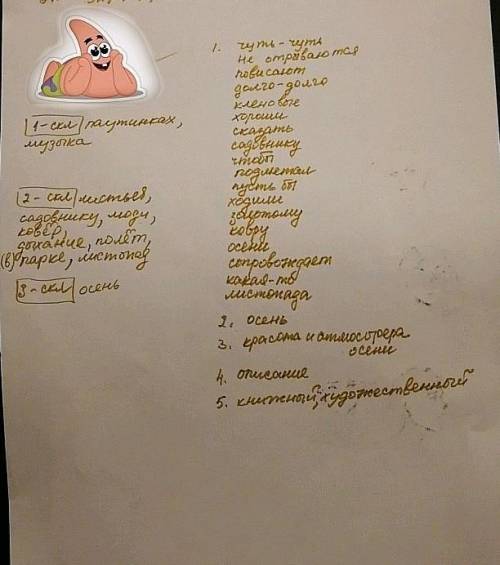 1-скл паутинках,
музыка
2-скл листьев,
садовнику, люди,
ковёр,
дыхание, полёт,
(в) парке, листопад
3-скл осень
1. чуть-чуть
не отрываются
повисают
долго-долго
кленовые
хороши
сказать
садовнику
чтобы
подметал
пусть бы
ходили
золотому
ковру
осени
сопровождает
какая-то
листопада
2. осень
3. красота и атмосфера
осени
4. описание
5. книжный, художественный